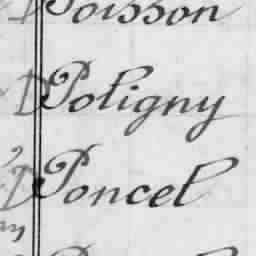 Poisson
D Poligny
D Poncel